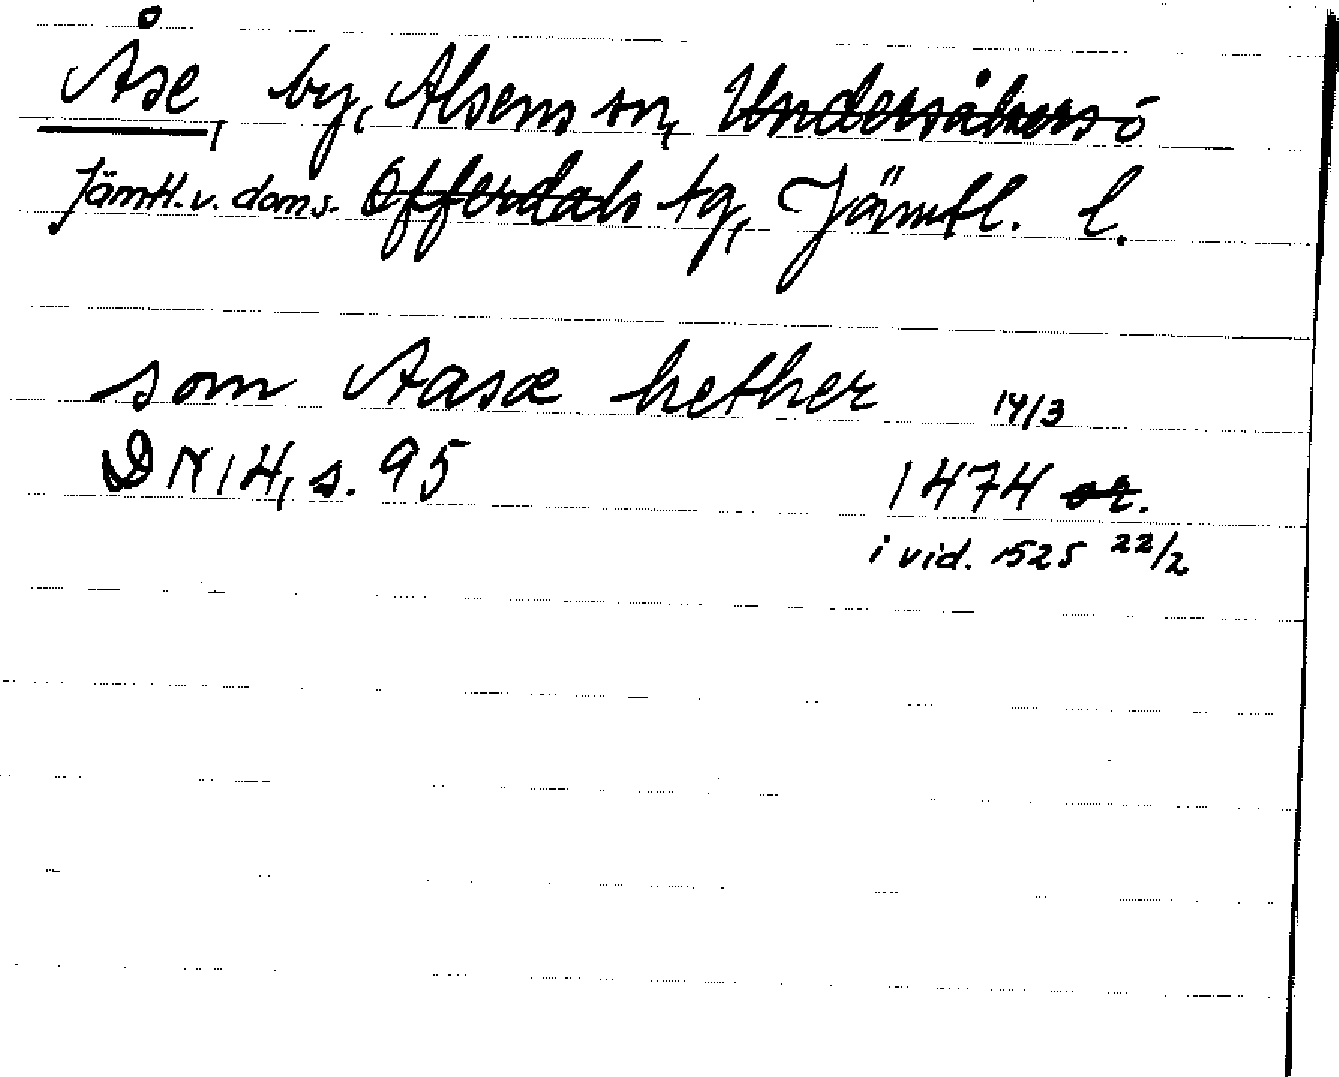 Åse, by, Alsens sn, Undersåkers ö
Jämtl. v. doms. Offerdals tg, Jämtl. l.
som Aasæ hether 14/3
DN 14, s. 95 1474 or.
i vid. 1525 22/2